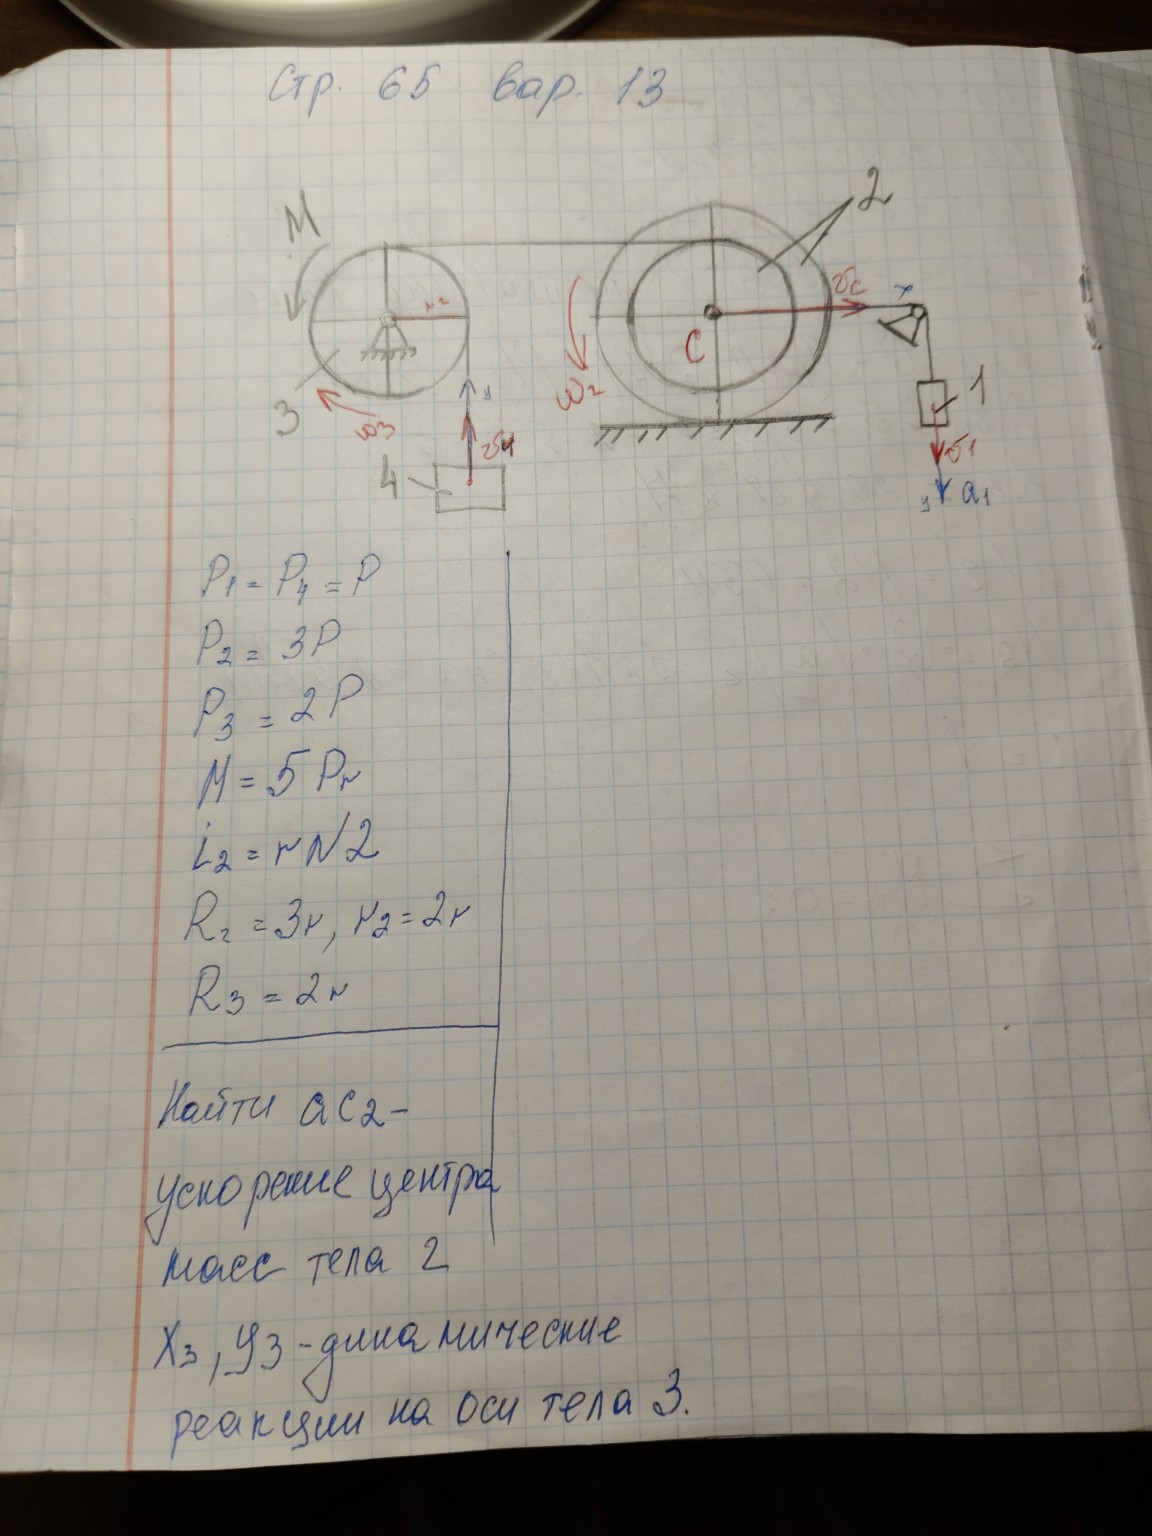 Стр. 65 вар. 13
M
2
r₂
υc
x
C
ω₂
3
ω3
y
υ4
4
1
υ1
y a₁
P₁ = P₄ = P
P₂ = 3P
P₃ = 2P
M = 5Pr
i₂ = r√2
R₂ = 3r, r₂ = 2r
R₃ = 2r
Найти aC2 -
ускорение центра
масс тела 2
X₃, Y₃ - динамические
реакции на оси тела 3.